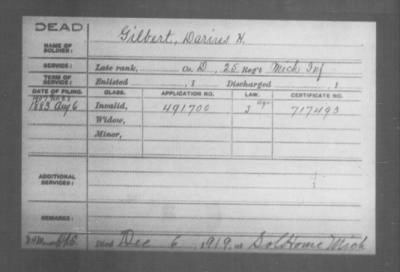 DEAD
NAME OF SOLDIER: Gilbert, Darius H.
SERVICE: Late rank, Co. D, 25 Reg't Mich Inf
TERM OF SERVICE: Enlisted , 1 Discharged 1
DATE OF FILING. CLASS. APPLICATION NO. LAW. CERTIFICATE NO.
1883 Aug 6 Invalid, 491700 717493
Widow,
Minor,
ADDITIONAL SERVICES:
REMARKS:
Died Dec 6, 1919, at Sol Home Mich